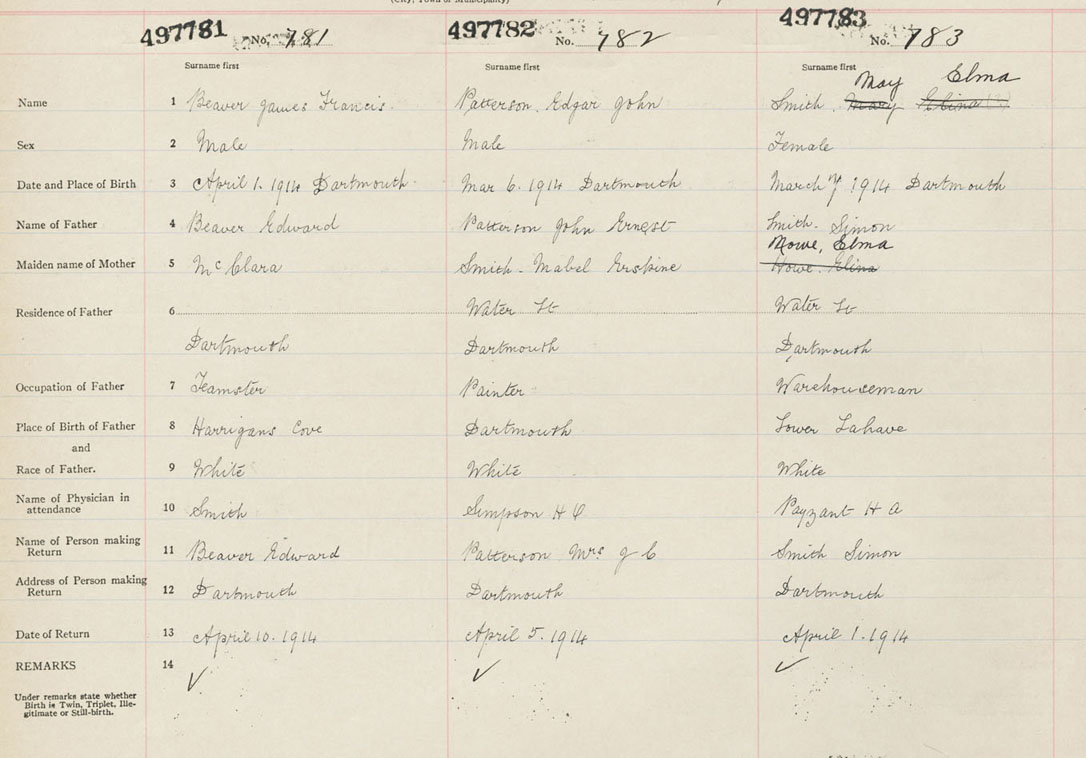 (City, Town or Municipality)
497781 No. 781 497782 No. 782 497783 No. 783
Surname first Surname first Surname first May Elma
Name 1 Beaver James Francis. Patterson. Edgar John Smith. Mary Elina (?)
Sex 2 Male Male Female
Date and Place of Birth 3 April 1. 1914 Dartmouth. Mar 6. 1914 Dartmouth March 7 1914 Dartmouth
Name of Father 4 Beaver Edward Patterson John Ernest Smith. Simon
Mowe, Elma
Maiden name of Mother 5 Mc Clara Smith - Mabel Erskine Howe. Elina
Residence of Father 6 Water St Water St
Dartmouth Dartmouth Dartmouth
Occupation of Father 7 Teamster Painter Warehouseman
Place of Birth of Father 8 Harrigans Cove Dartmouth Lower Lahave
and
Race of Father. 9 White White White
Name of Physician in attendance 10 Smith Simpson H Payzant H A
Name of Person making Return 11 Beaver Edward Patterson Mrs J E Smith Simon
Address of Person making Return 12 Dartmouth Dartmouth Dartmouth
Date of Return 13 April 10. 1914 April 5. 1914 April 1. 1914
REMARKS 14 ✓ ✓ ✓
Under remarks state whether
Birth is Twin, Triplet, Ille-
gitimate or Still-birth.